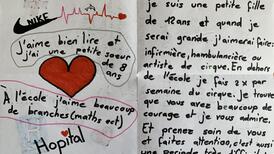 NIKE
J'aime bien lire et
j'ai une petite soeur
de 8
ans
À l'école j'aime beaucoup
de branches (maths ect)
Hopital
je suis une petite fille
de 12ans et quand je
serai grande j'aimerai faire
infirmière, hambulancière ou
artiste de cirque. En dehors
de l'école je fais 2x par
semaine du cirque. Je trouve
que vous avez beaucoup de
courage et je vous admire.
Et prenez soin de vous
et faites attention, c'est aussi